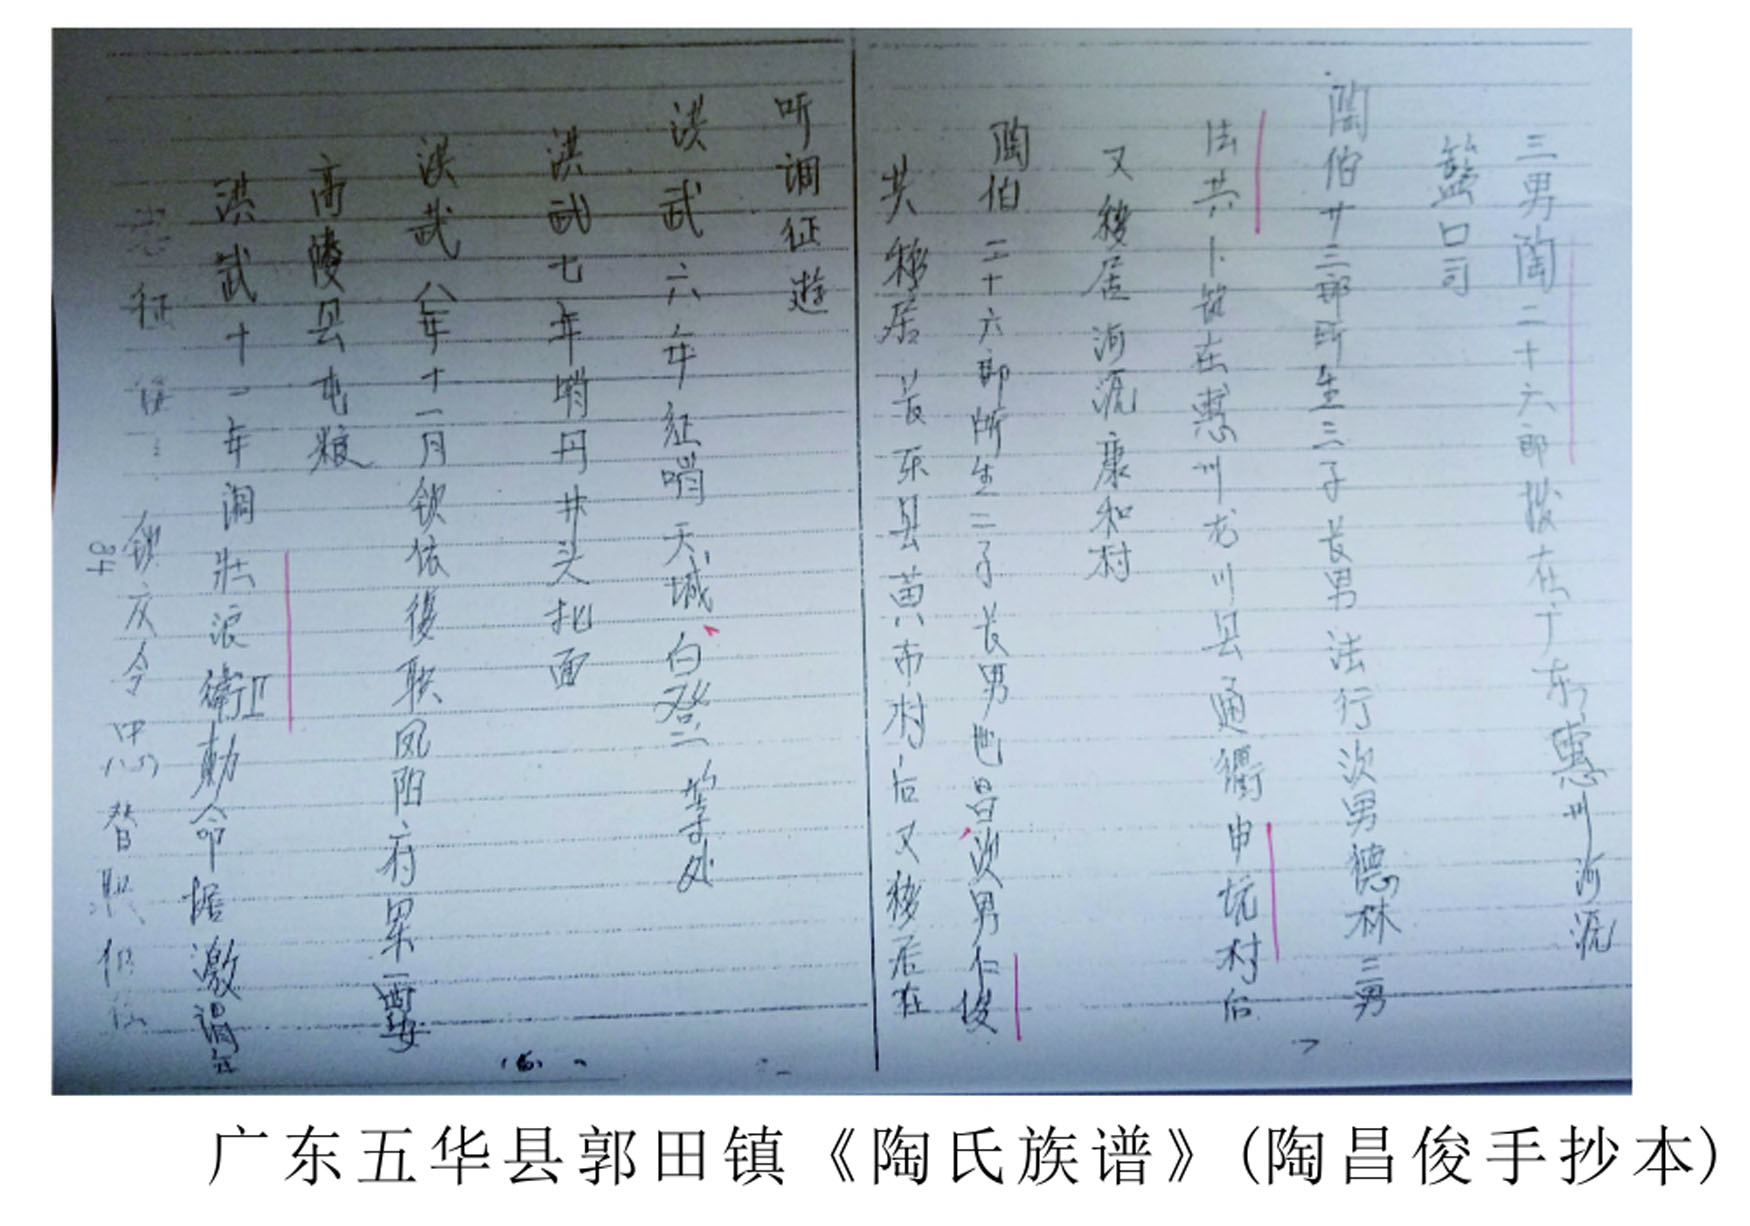 三男陶二十六郎拨在广东惠州河沅
蓝口司
陶伯廿三郎所生三子长男法行次男德林三男
法共卜筑在惠州龙川县通衢申坑村后
又移居河沅康和村
陶伯二十六郎所生二子长男也昌次男仁俊
共移居长乐县黄布村后又移居在
听调征遊
洪武六年征哨天城白登二等处
洪武七年哨丹井头北面
洪武八年十一月钦依复职凤阳府累西安
高陵县屯粮
洪武十一年调壮浪衛勅命据激
征
广东五华县郭田镇《陶氏族谱》(陶昌俊手抄本)